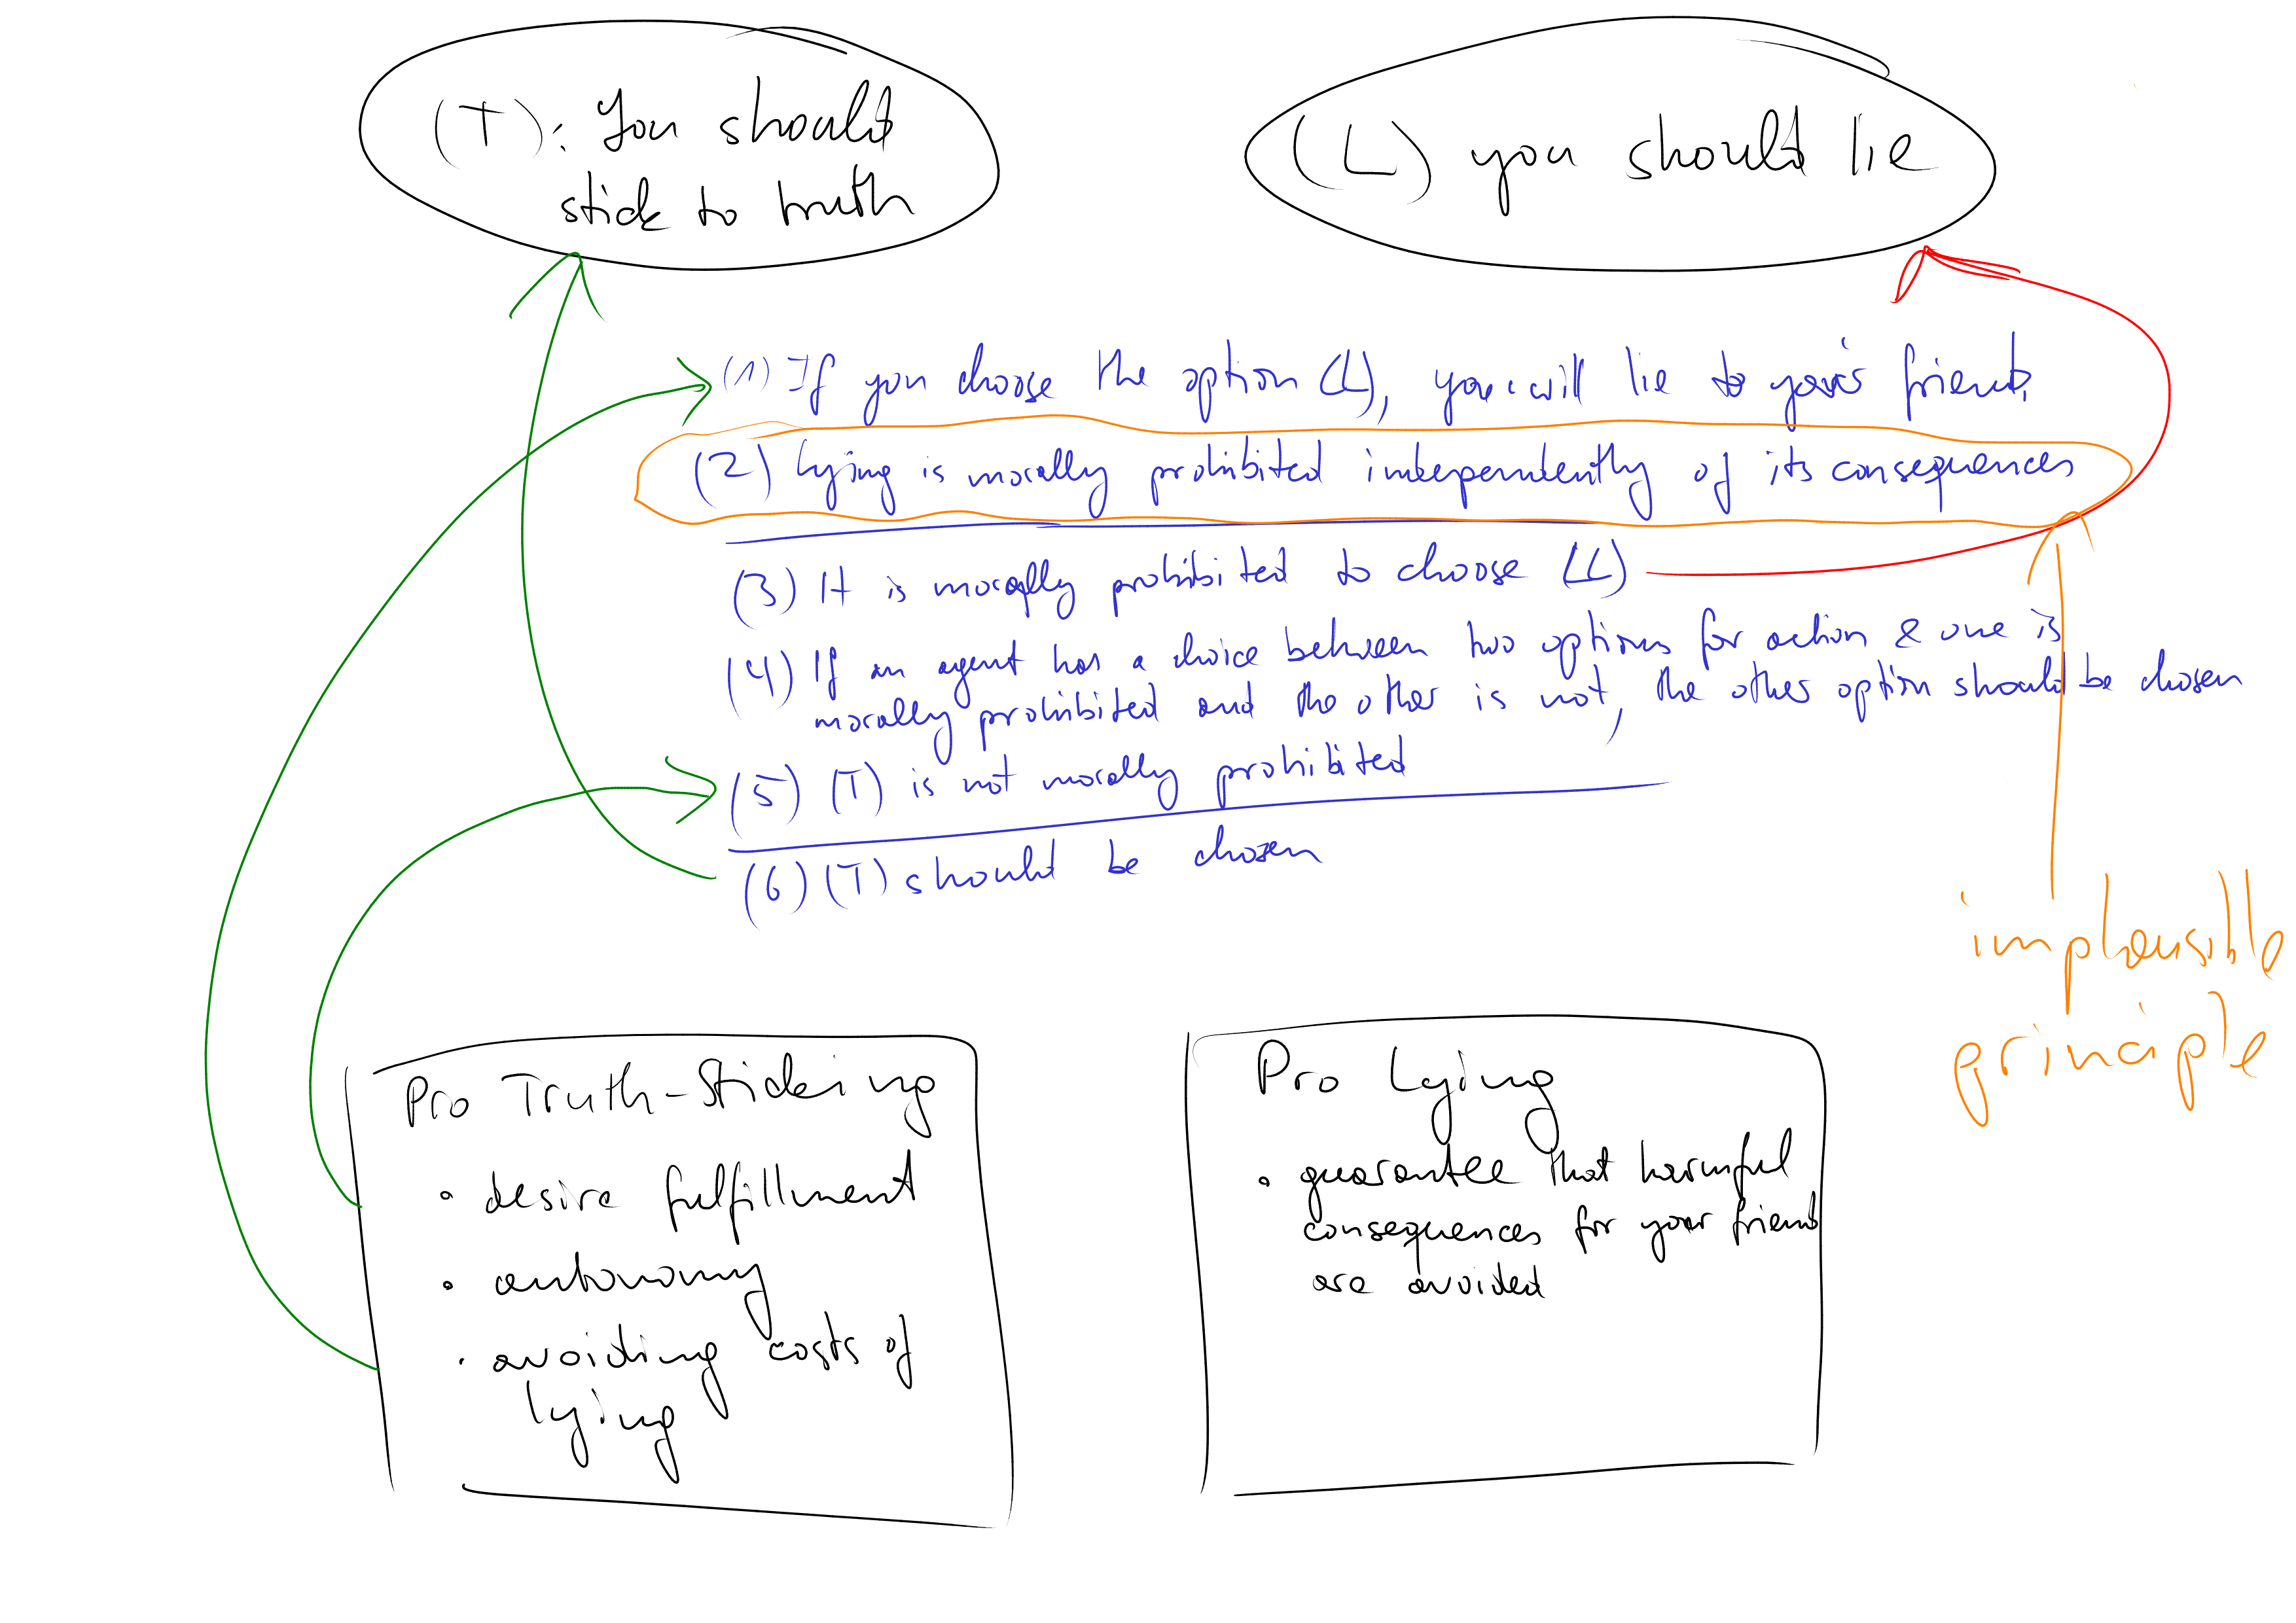 (T): You should
stick to truth
(L) you should lie
(1) If you choose the option (L), you will lie to your friend.
(2) Lying is morally prohibited independently of its consequences
(3) It is morally prohibited to choose (L)
(4) If an agent has a choice between two options for action & one is
morally prohibited and the other is not, the other option should be chosen
(5) (T) is not morally prohibited
(6) (T) should be chosen
implausible
principle
Pro Truth-Sticking
• desire fulfillment
• autonomy
• avoiding costs of
lying
Pro Lying
• guarantee that harmful
consequences for your friend
are avoided